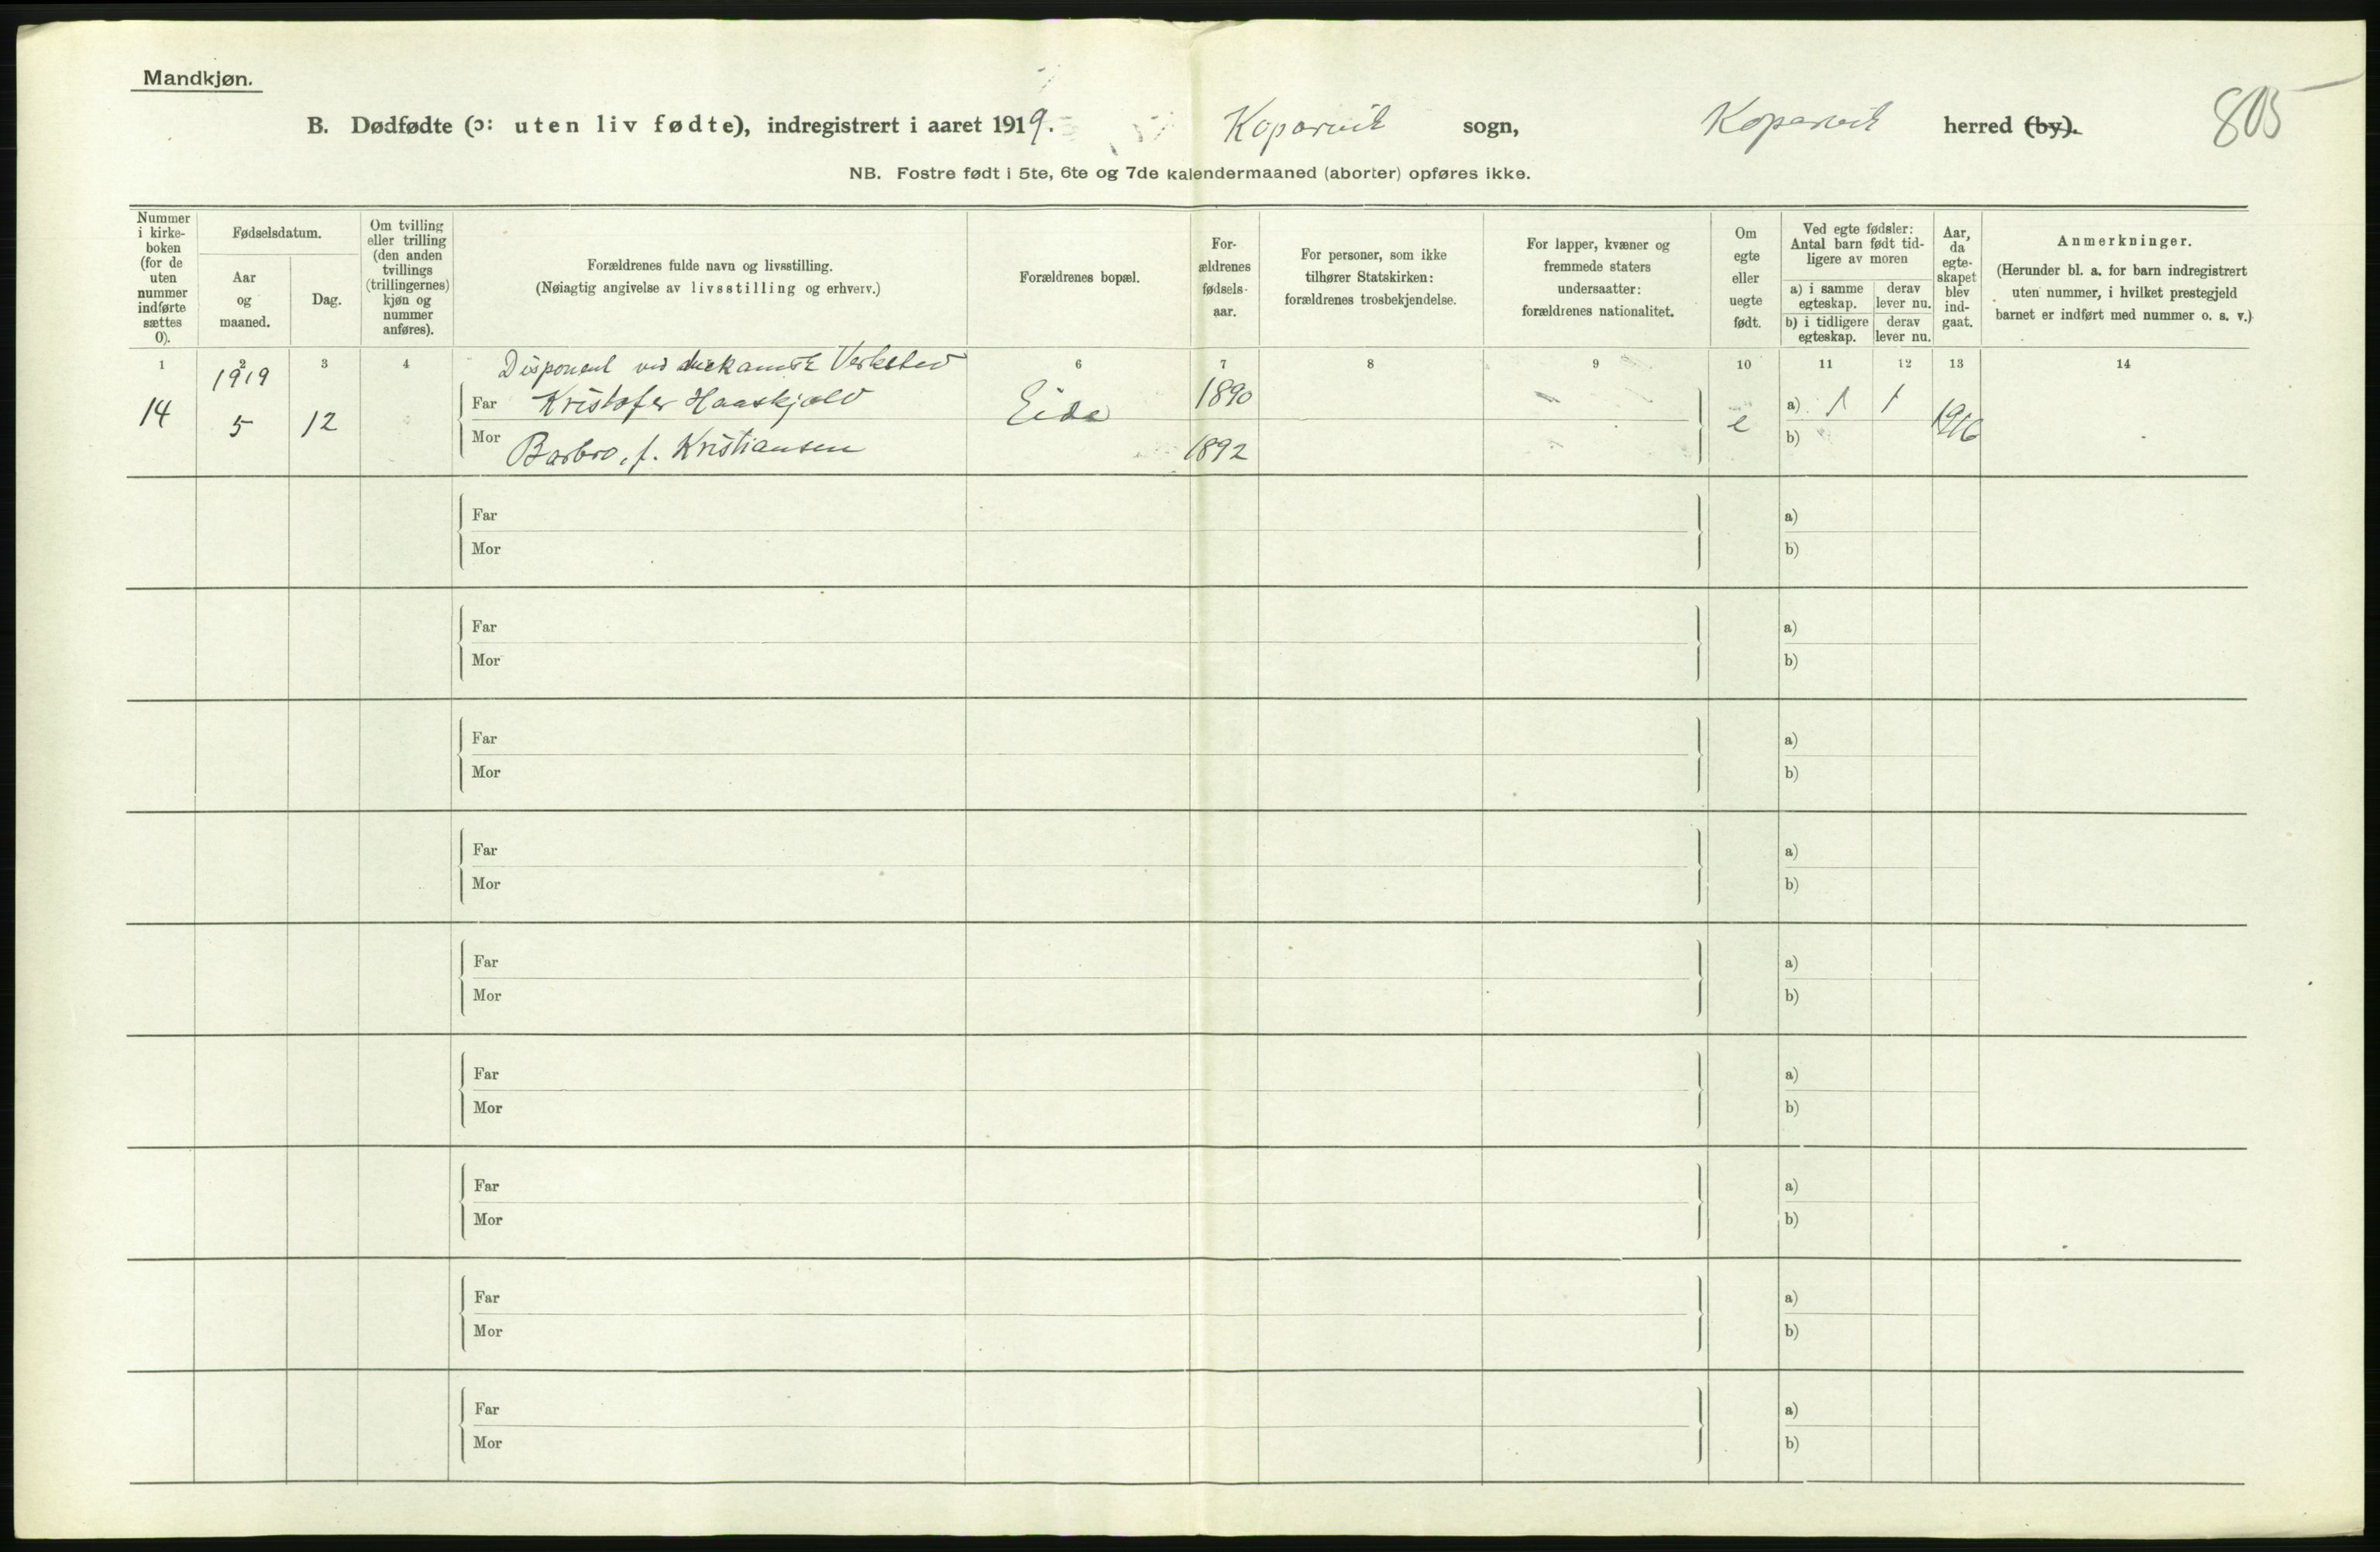 Mandkjøn.
B. Dødfødte (ɔ: uten liv fødte), indregistrert i aaret 1919. Kopervik sogn, Kopervik herred (by). 805
NB. Fostre født i 5te, 6te og 7de kalendermaaned (aborter) opføres ikke.
Nummer
i kirke-
boken
(for de
uten
nummer
indførte
sættes
0).
Fødselsdatum.
Aar
og
maaned.
Dag.
Om tvilling
eller trilling
(den anden
tvillings
(trillingernes)
kjøn og
nummer
anføres).
Forældrenes fulde navn og livsstilling.
(Nøiagtig angivelse av livsstilling og erhverv.)
Forældrenes bopæl.
For-
ældrenes
fødsels-
aar.
For personer, som ikke
tilhører Statskirken:
forældrenes trosbekjendelse.
For lapper, kvæner og
fremmede staters
undersaatter:
forældrenes nationalitet.
Om
egte
eller
uegte
født.
Ved egte fødsler:
Antal barn født tid-
ligere av moren
a) i samme
egteskap.
derav
lever nu.
b) i tidligere
egteskap.
derav
lever nu.
Aar,
da
egte-
skapet
blev
ind-
gaat.
Anmerkninger.
(Herunder bl. a. for barn indregistrert
uten nummer, i hvilket prestegjeld
barnet er indført med nummer o. s. v.)
1 2 3 4 6 7 8 9 10 11 12 13 14
Disponent ved mekanisk Verksted
1919
Far Kristofer Haaskjold Eide 1890 a) 1 1
14 5 12 e 1916
Mor Barbro, f. Kristiansen 1892 b)
Far a)
Mor b)
Far a)
Mor b)
Far a)
Mor b)
Far a)
Mor b)
Far a)
Mor b)
Far a)
Mor b)
Far a)
Mor b)
Far a)
Mor b)
Far a)
Mor b)